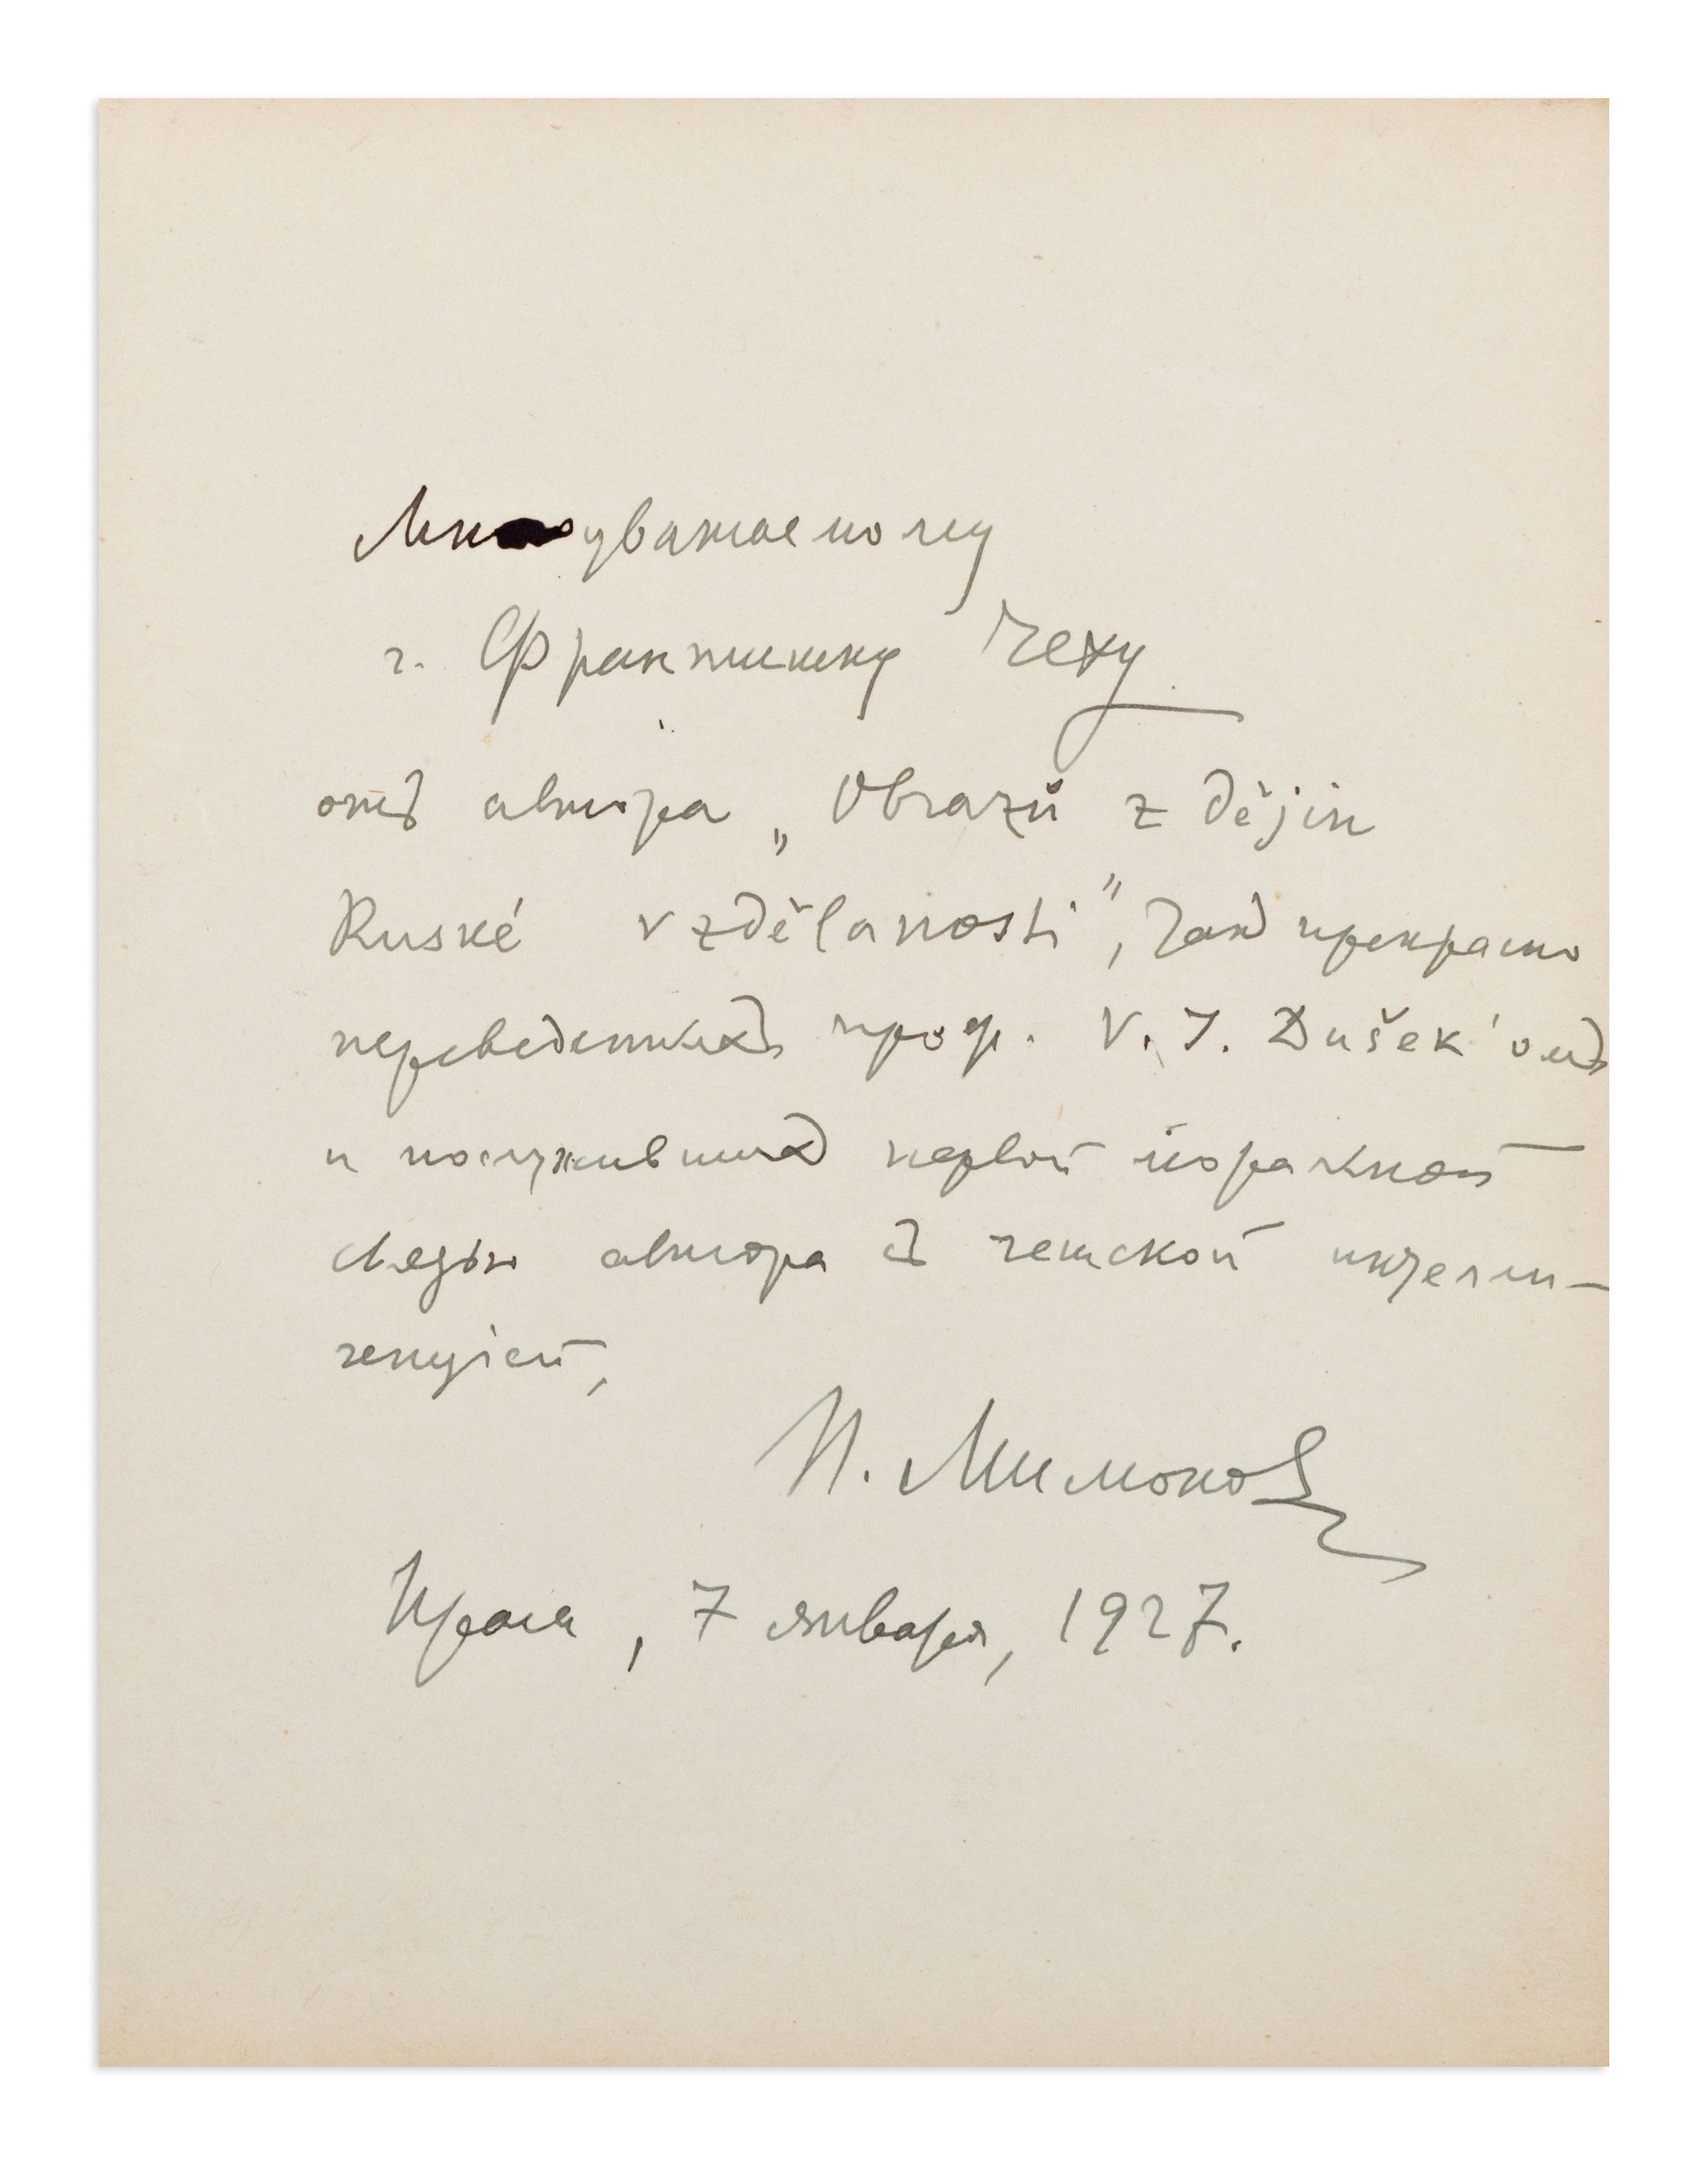 Многоуважаемому
г. Франтишку Чеху
отъ автора „Obrazů z dějin
Ruské vzdělanosti", такъ прекрасно
переведенныхъ проф. V. J. Dušek'омъ
и послужившихъ первой
связью автора съ чешской интелли-
генціей,
П. Милюковъ
Прага, 7 января, 1927.